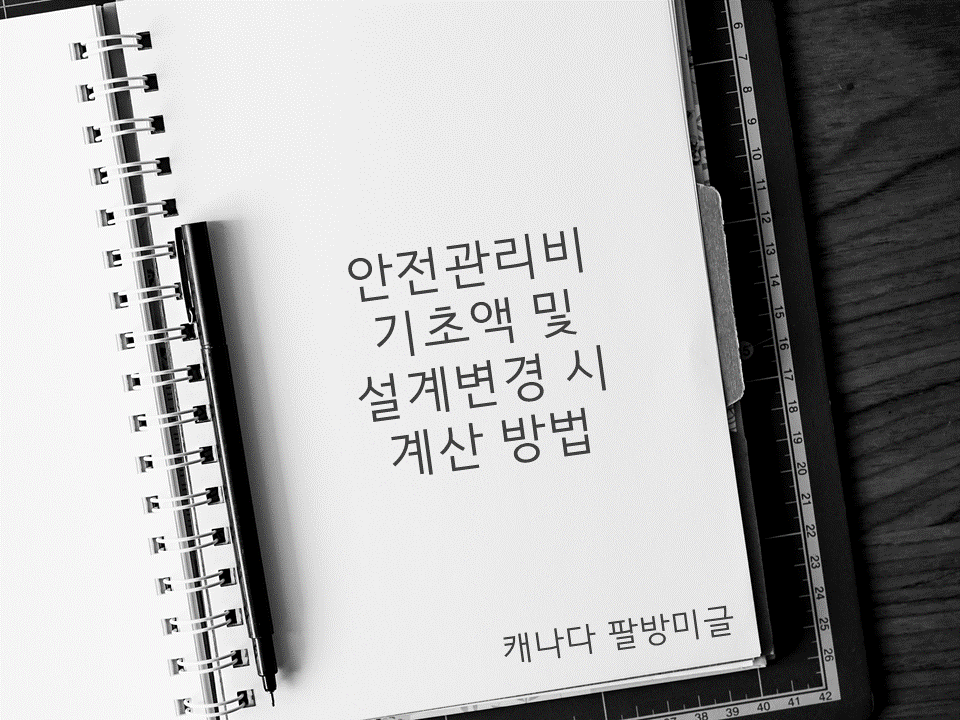 안전관리비
기초액 및
설계변경 시
계산 방법
캐나다 팔방미글
6
7
8
9
10
11
12
13
14
15
16
17
18
19
20
21
22
23
24
25
26
38 39 40 41 42